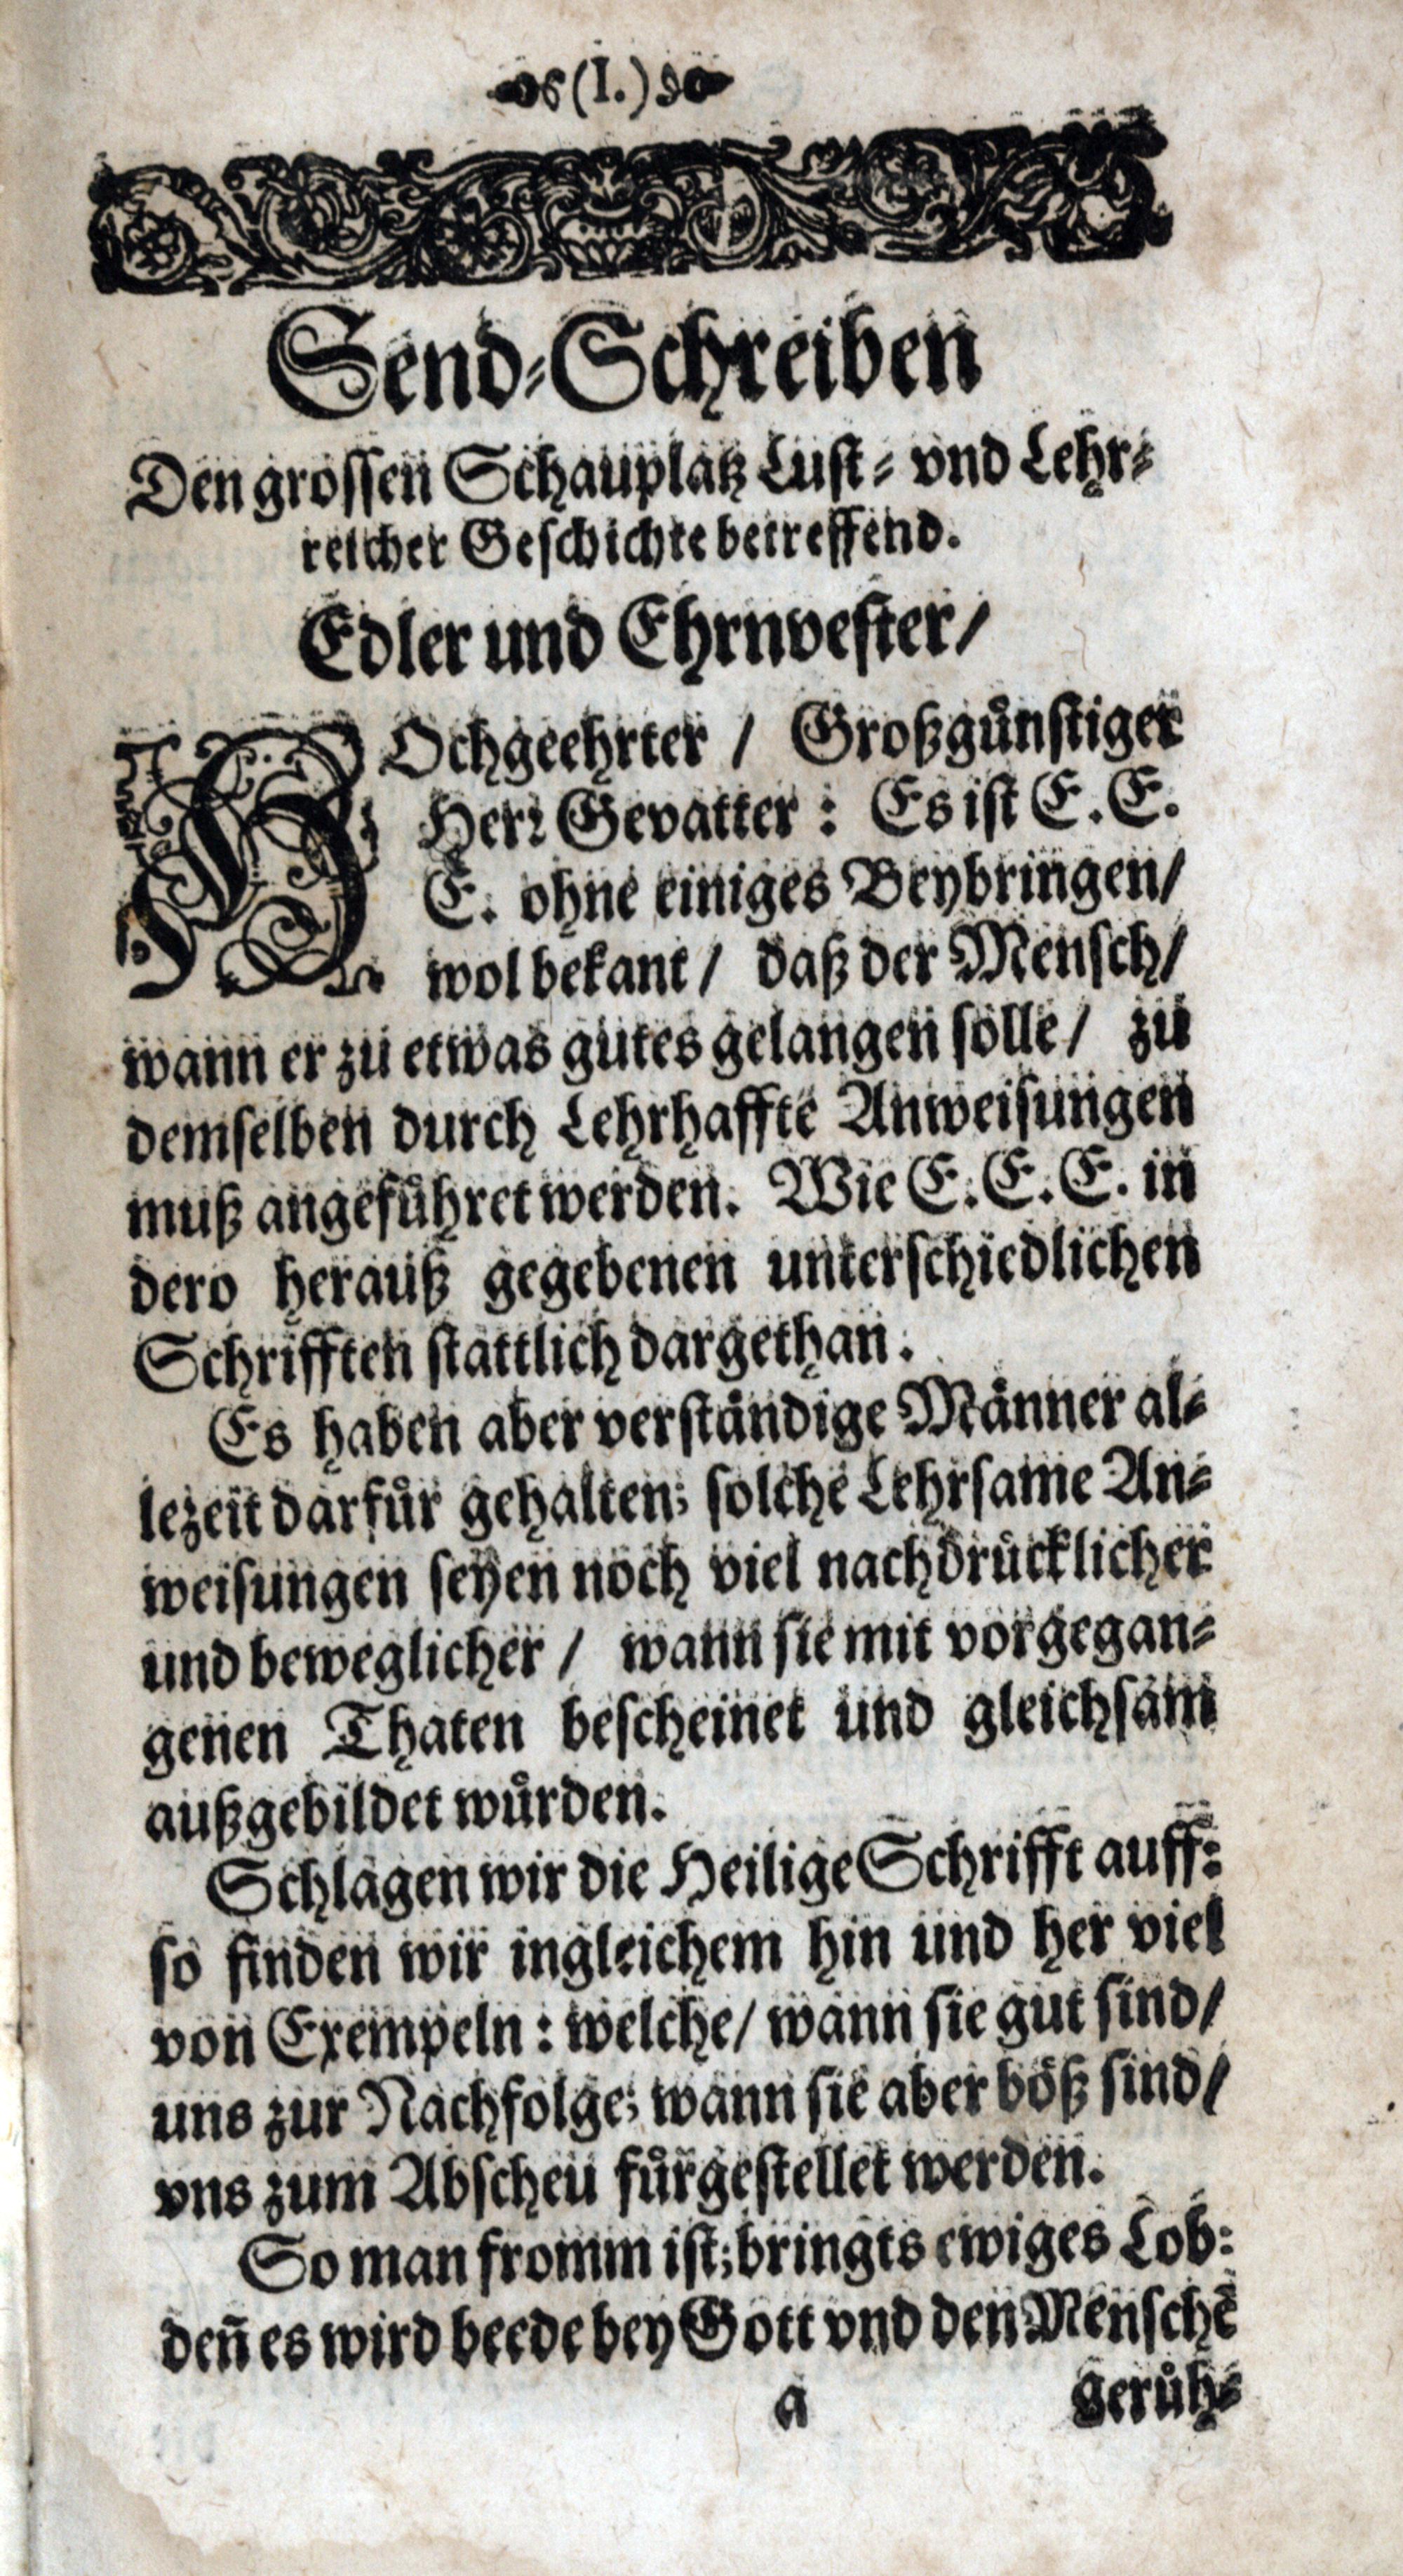 (I.)
Send-Schreiben
Den grossen Schauplatz Lust- vnd Lehr-
reicher Geschichte betreffend.
Edler und Ehrnvester/
HOchgeehrter / Großgůnstiger
Herꝛ Gevatter: Es ist E. E.
E. ohne einiges Beybringen/
wol bekant / daß der Mensch/
wann er zu etwas gutes gelangen solle / zu
demselben durch Lehrhaffte Anweisungen
muß angefůhret werden. Wie E. E. E. in
dero herauß gegebenen unterschiedlichen
Schrifften stattlich dargethan.
Es haben aber verståndige Månner al-
lezeit darfůr gehalten; solche Lehrsame An-
weisungen seyen noch viel nachdrůcklicher
und beweglicher / wann sie mit vorgegan-
genen Thaten bescheinet und gleichsam
außgebildet wůrden.
Schlagen wir die Heilige Schrifft auff:
so finden wir ingleichem hin und her viel
von Exempeln: welche/ wann sie gut sind/
uns zur Nachfolge; wann sie aber bòß sind/
vns zum Abscheu fůrgestellet werden.
So man fromm ist; bringts ewiges Lob:
deñ es wird beede bey Gott vnd den Menschē
a gerůh-